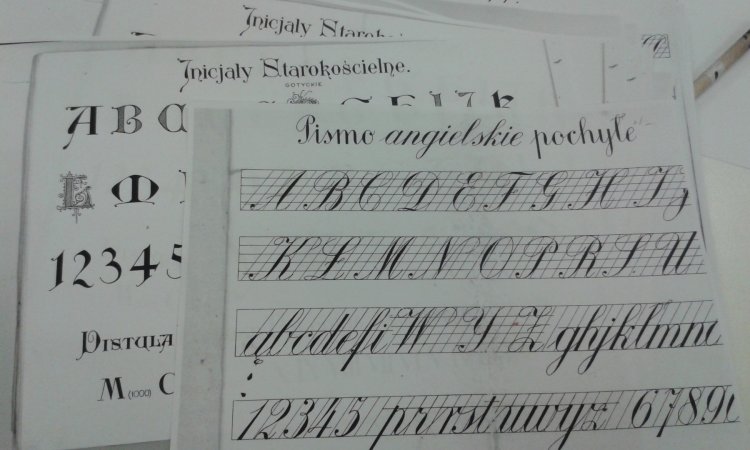 Inicjały Staroko
Inicjały Starokościelne.
GOTYCKIE
A B C
L M
12345
DISTULA
M (1000) C
Pismo angielskie pochyłe
A B C D E F G H I J
K L M N O P R S U
ąbcdefi W Y Z ghjklmn
12345 prrstuwyz 6789